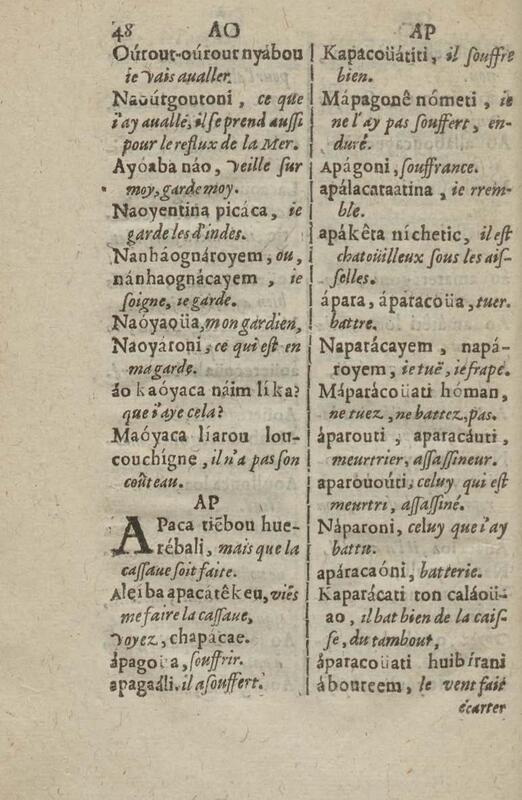 48 AO AP
Oúrout-oúrout nyábou
ie vais aualler.
Naoúrgoutoni, ce que
i'ay auallé, il se prend aussi
pour le reflux de la Mer.
Ayóaba náo, veille sur
moy, garde moy.
Naoyentina picáca, ie
garde les d'indes.
Nanháognároyem, ou,
nánhaognácayem, ie
soigne, ie garde.
Naóyaoüa, mon gardien,
Naoyároni, ce qui est en
ma garde.
áo kaóyaca náim líka?
que i'aye cela?
Maóyaca líarou lou-
couchígne, il n'a pas son
coûteau.
AP
APaca tiêbou hue-
rébali, mais que la
cassaue soit faite.
Aleíba apacatêkeu, viés
me faire la cassaue,
voyez, chapácae.
ápagoia, souffrir.
apagaáli, il a souffert.
Kapacoüátiti, il souffre
bien.
Mápagonê nómeti, ie
ne l'ay pas souffert, en-
duré.
Apágoni, souffrance.
apálacataatina, ie rrem-
ble.
apákêta níchetic, il est
chatoüilleux sous les ais-
selles.
ápara, áparacoüa, tuer.
battre.
Naparácayem, napá-
royem, ie tuë, ie frape.
Máparácoüati hóman,
ne tuez, ne battez, pas.
áparouti, aparacáuti,
meurtrier, assassineur.
aparououti, celuy qui est
meurtri, assassiné.
Náparoni, celuy que i'ay
battu.
apáracaóni, batterie.
Kaparácati ton caláoü-
ao, il bat bien de la cais-
se, du tambout,
áparacoüati huibírani
áboureem, le vent fait
écarter